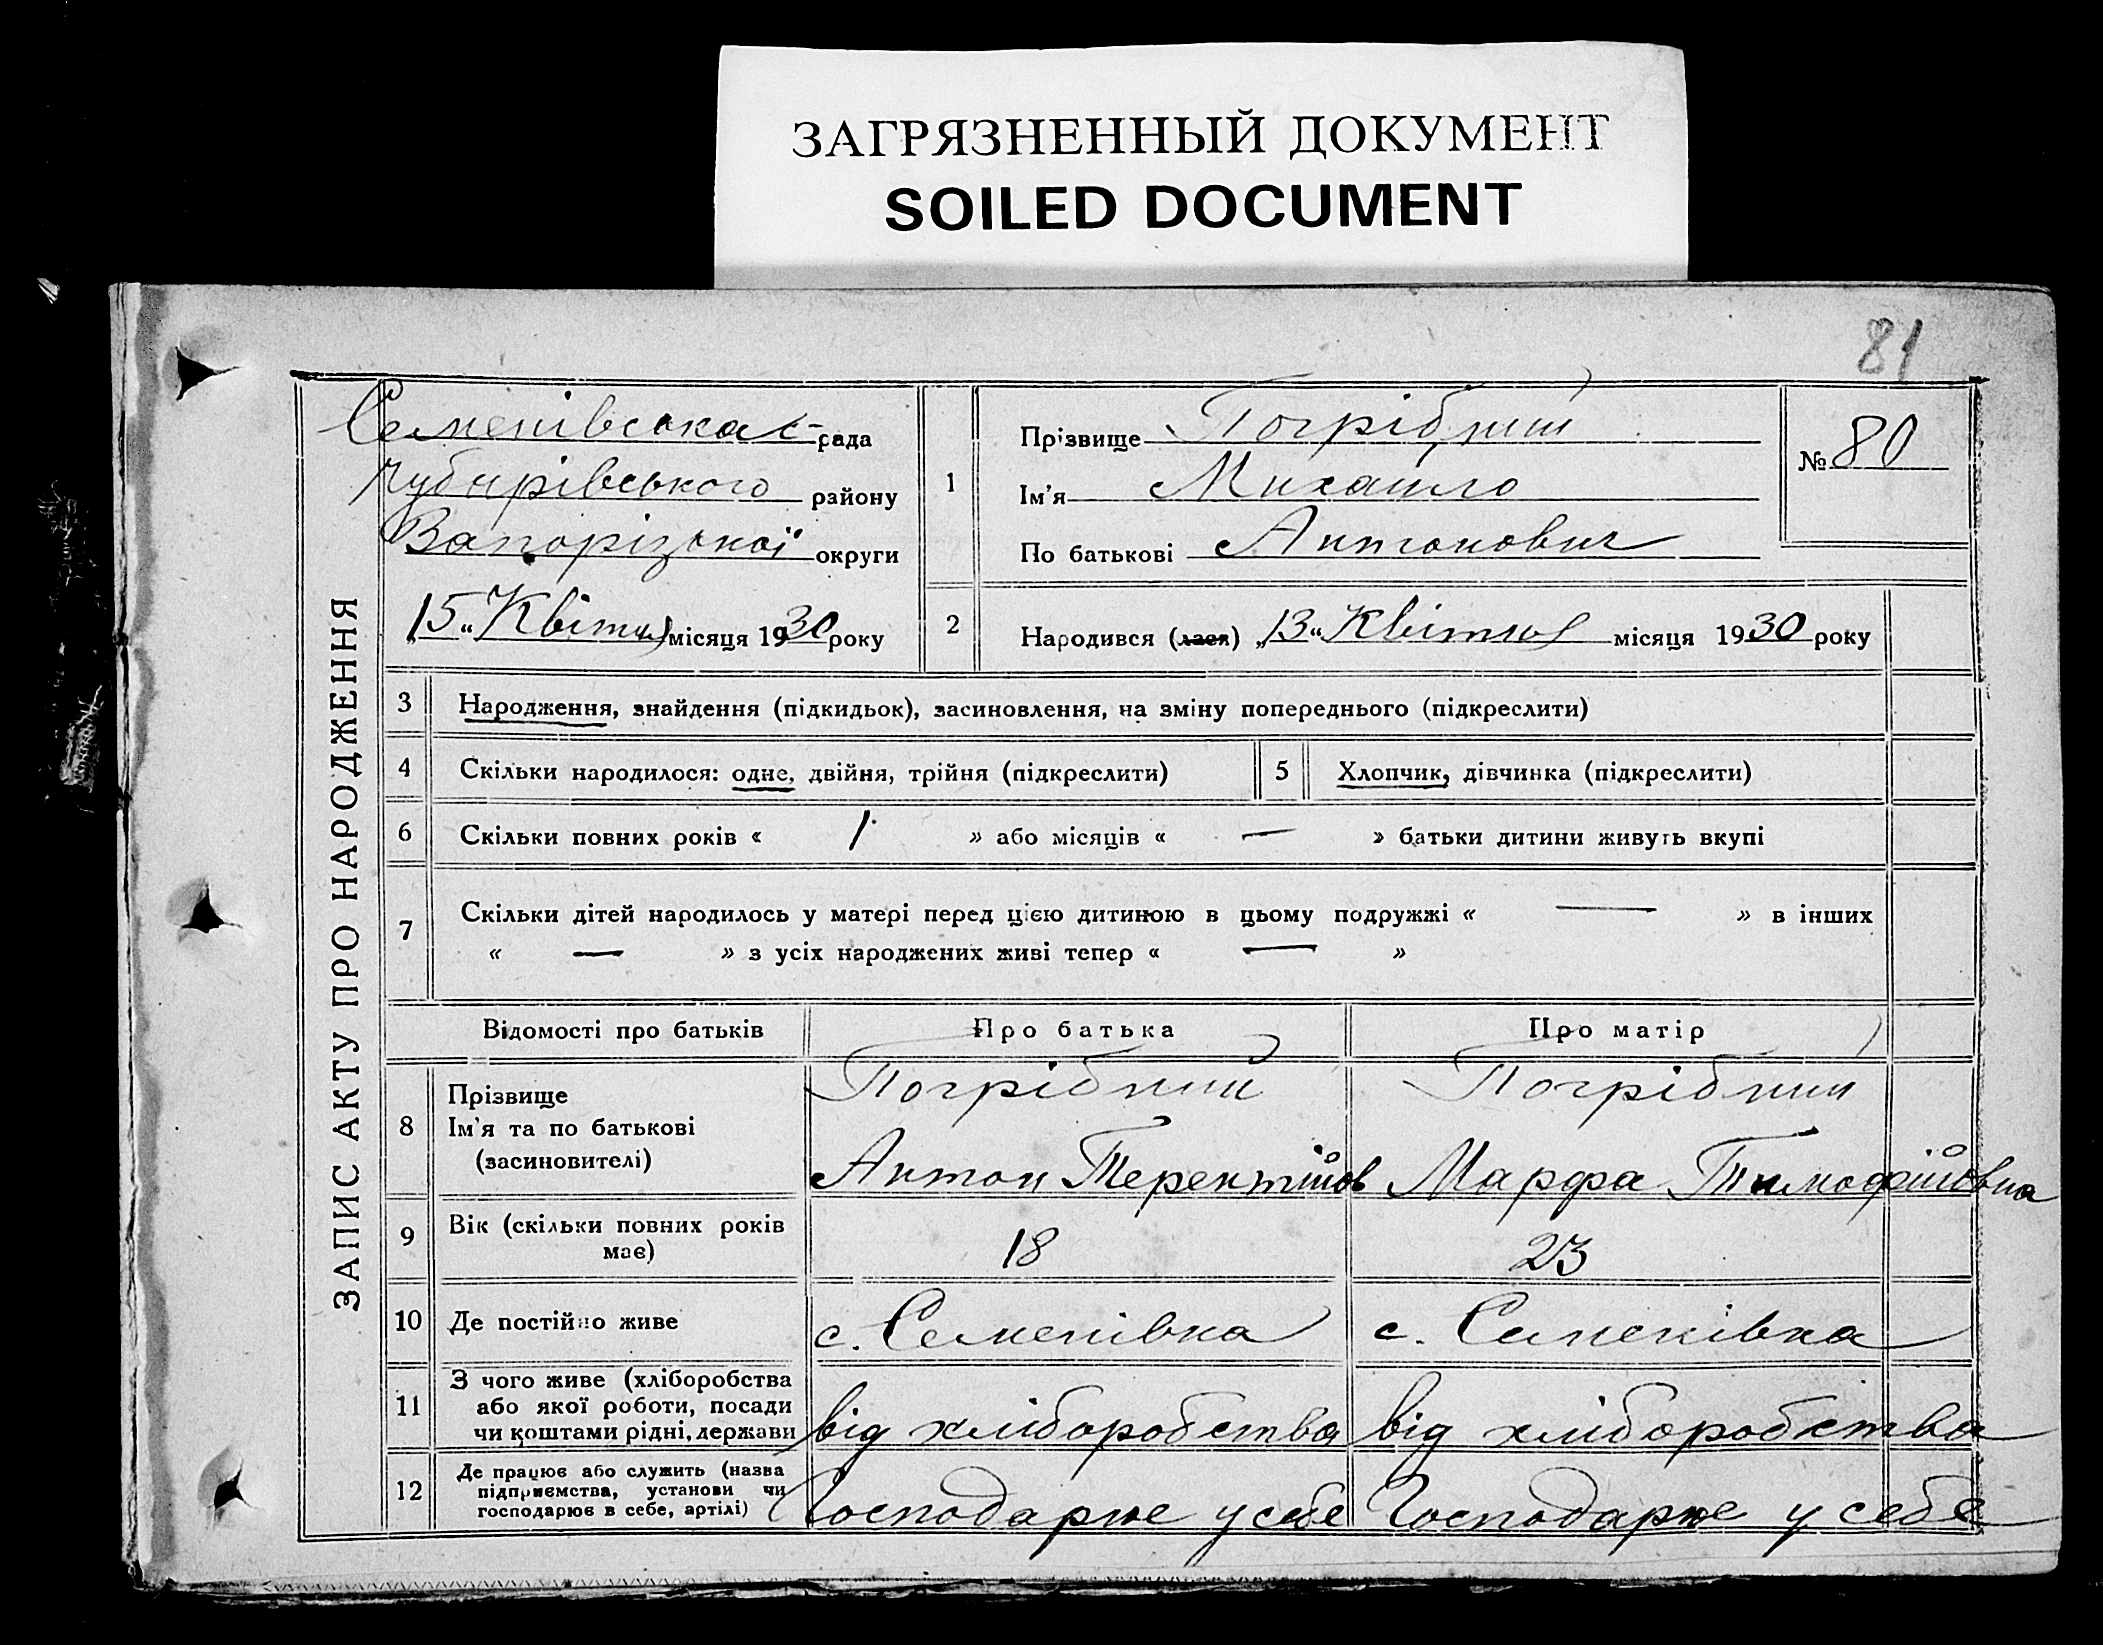 ЗАГРЯЗНЕННЫЙ ДОКУМЕНТ
SOILED DOCUMENT
81
ЗАПИС АКТУ ПРО НАРОДЖЕННЯ
Семенівська с-рада
Чубарівського району
Запорізької округи
„15“ Квітня місяця 1930 року
1
Прізвище Погрібний
Ім’я Михайло
По батькові Антонович
№ 80
2
Народився (лася) „13“ Квітня місяця 1930 року
3 Народження, знайдення (підкидьок), засиновлення, на зміну попереднього (підкреслити)
4 Скільки народилося: одне, двійня, трійня (підкреслити)
5 Хлопчик, дівчинка (підкреслити)
6 Скільки повних років « 1 » або місяців « — » батьки дитини живуть вкупі
7 Скільки дітей народилось у матері перед цією дитиною в цьому подружжі « — » в інших
« — » з усіх народжених живі тепер « — »
Відомості про батьків Про батька Про матір
8 Прізвище
Ім’я та по батькові
(засиновителі)
Погрібний
Антон Терентійов
Погрібний
Марфа Тимофійовна
9 Вік (скільки повних років
має)
18
23
10 Де постійно живе
с. Семенівка
с. Семенівка
11 З чого живе (хліборобства
або якої роботи, посади
чи коштами рідні, держави
від хліборобства
від хліборобства
12 Де працює або служить (назва
підприємства, установи чи
господарює в себе, артілі)
Господарює у себе
Господарює у себе